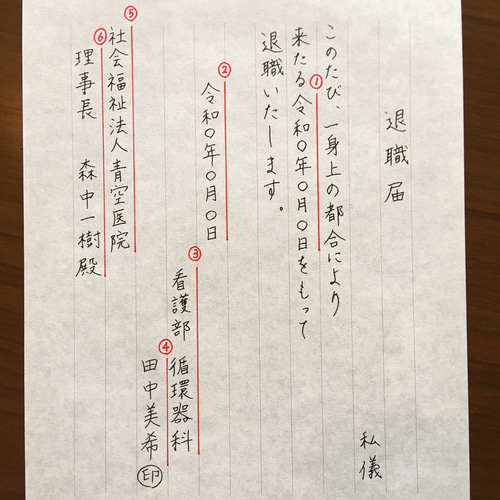 退職届
私儀
このたび、一身上の都合により
①
来たる令和〇年〇月〇日をもって
退職いたします。
②
令和〇年〇月〇日
③
看護部 循環器科
④
田中美希 印
⑤
社会福祉法人青空医院
⑥
理事長 森中一樹殿